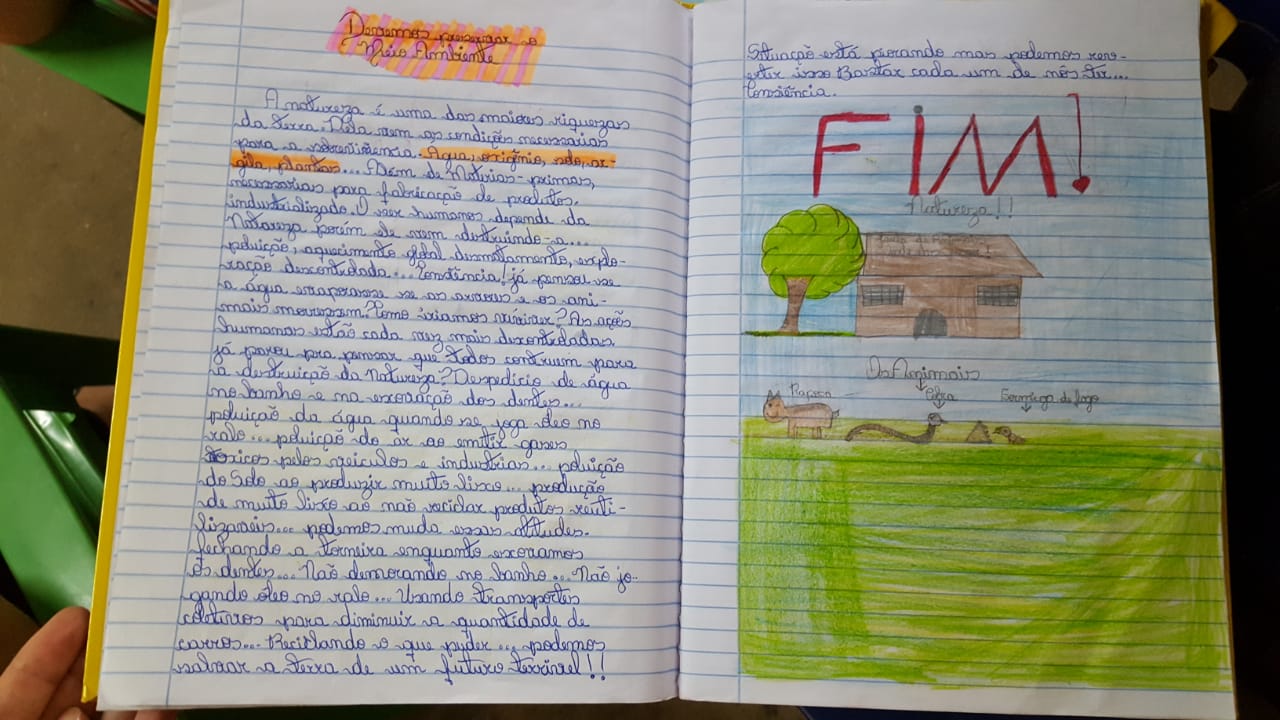 Devemos preservar o
Meio Ambiente
A natureza é uma das maiores riquezas
da terra. Dela vem as condições necessarias
para a sobrevivência. Agua, oxigênio, solo, ar-
gila, plantas... Além de Matérias-primas,
necessarias para fabricação de produtos.
industrializado. O seer humanos depende da
Natureza porém ele vem destruindo-a...
poluição, aquecimento global desmatamento, explo-
ração descontrolada... Consciência! já pensou se
a água evaporasse se as arvores e os ani-
mais morressem? Como iriamos viver? As ações
humanas estão cada vez mais descontroladas.
já parou pra pensar que todos contribuem para
a destruição da Natureza? Despedicio de água
no banho e na escovação dos dentes...
poluição da água quando se joga óleo no
ralo... poluição do ar ao emitir gases
tóxicos pelos veiculos e industrias... poluição
do Solo ao produzir muito lixo... produção
de muito lixo ao não reciclar produtos reuti-
lizaveis... podemos muda essas atitudes.
fechando a torneira enquanto escovamos
os dentes... Não demorando no banho... Não jo-
gando óleo no ralo... Usando transportes
coletivos para diminuir a quantidade de
carros... Reciclando o que puder... podemos
salvar a terra de um futuro terrivel!!
Situação está piorando mas podemos rev-
ertir isso Bastar cada um de nós ter...
Consiência.
FIM!
Natureza!!
Os Animais
Raposa Cobra Formiga de fogo